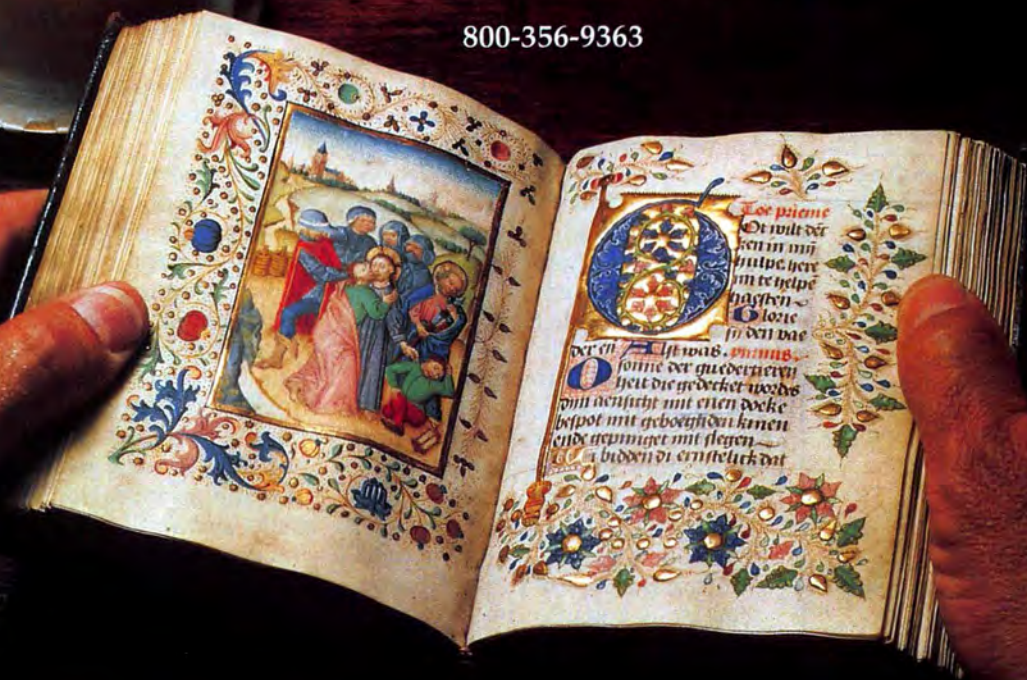 800-356-9363
Toe prieme
Ot wilt dēc
ken in mÿ
hulpe here
im te helpe
haesten
Glorie
si den vae
der en Alst was. primus.
O sonne der guedertieren
heit die gedecket wordes
dijn aensicht mit enen doeke
bespot mit geboechden knien
ende gepiniget mit slegen
bidden di ernstelick dat